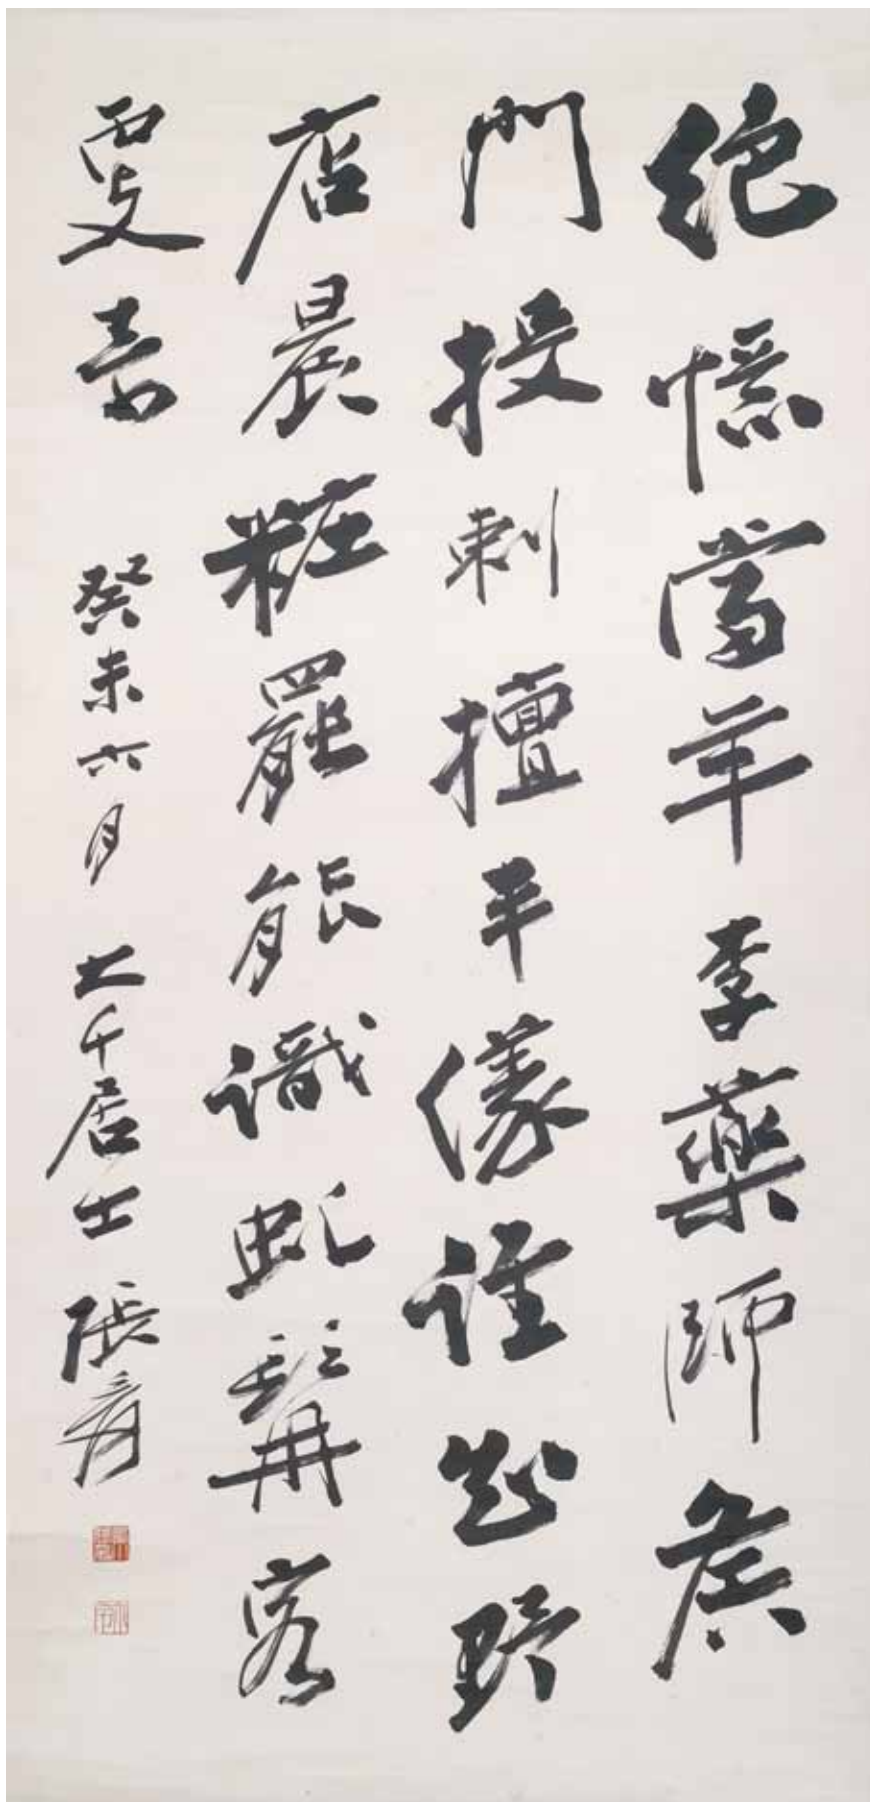 絕憶當年李藥師侯
門投刺擅丰儀誰知野
店晨粧罷能識虬髯客
㪅奇 癸未六月 大千居士張爰